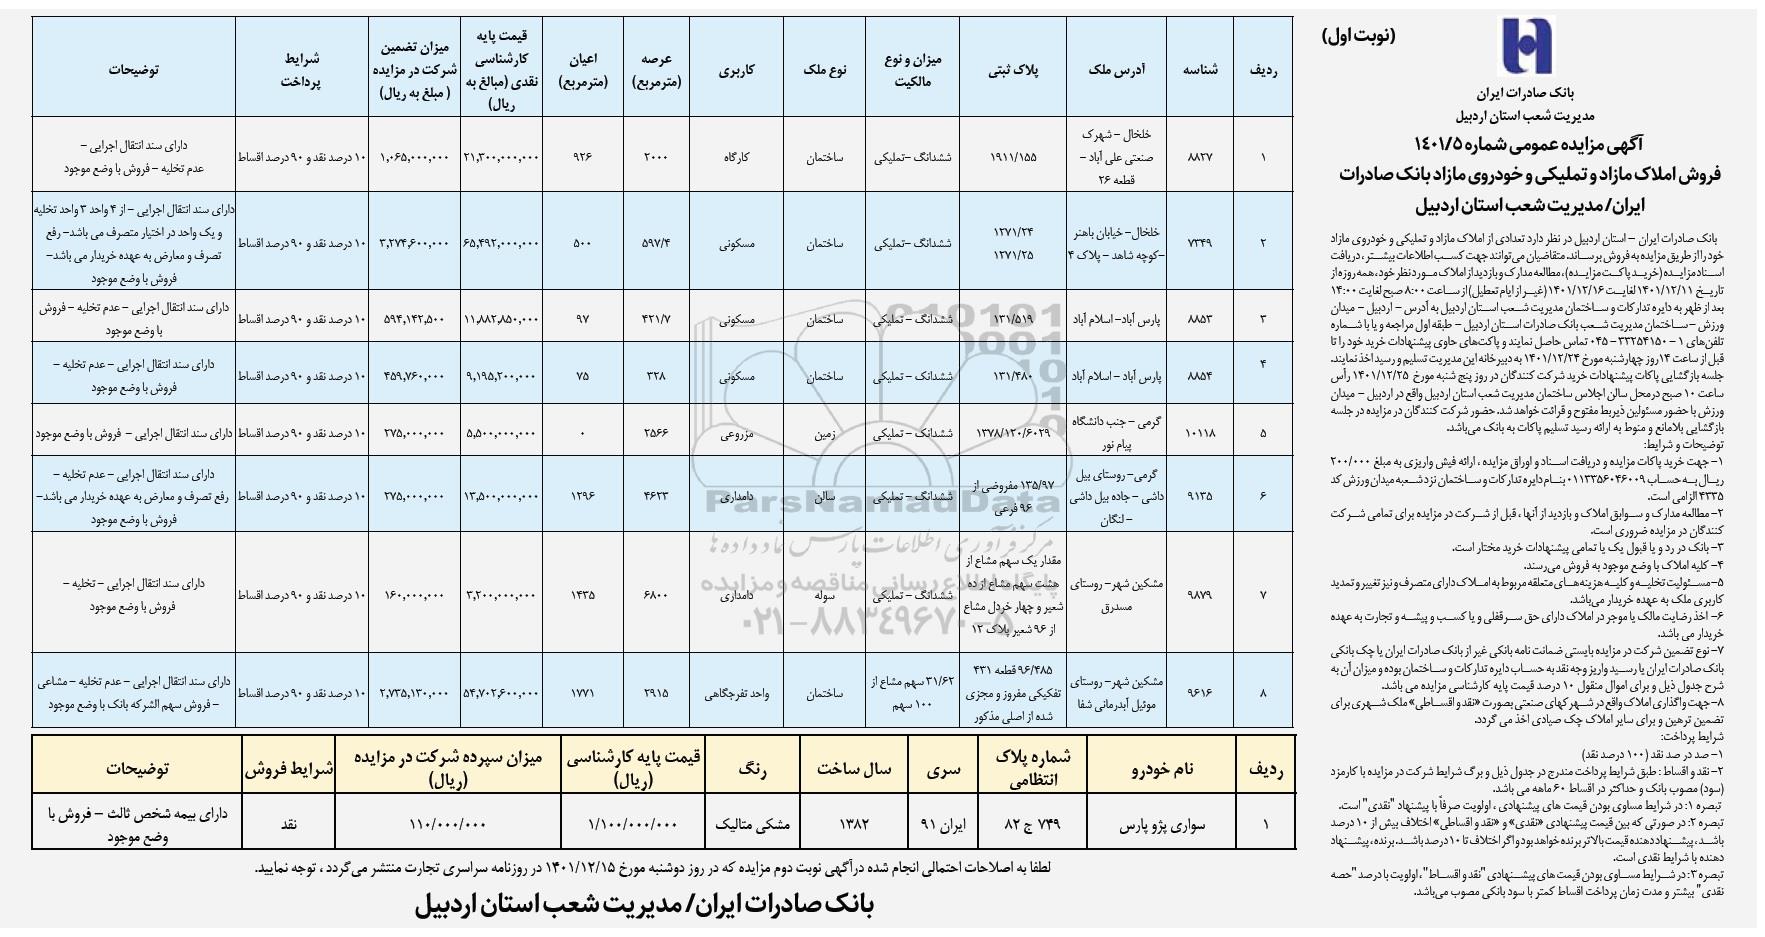 (نوبت اول)
بانک صادرات ایران
مدیریت شعب استان اردبیل
آگهی مزایده عمومی شماره ۱۴۰۱/۵
فروش املاک مازاد و تملیکی و خودروی مازاد بانک صادرات
ایران/ مدیریت شعب استان اردبیل
بانک صادرات ایران – استان اردبیل در نظر دارد تعدادی از املاک مازاد و تملیکی و خودروی مازاد
خود را از طریق مزایده به فروش برساند. متقاضیان می‌توانند جهت کسب اطلاعات بیشتر، دریافت
اسناد مزایده (خرید پاکت مزایده)، مطالعه مدارک و بازدید از املاک مورد نظر خود، همه روزه از
تاریخ ۱۴۰۱/۱۲/۱۱ لغایت ۱۴۰۱/۱۲/۱۶ (غیر از ایام تعطیل) از ساعت ۸:۰۰ صبح لغایت ۱۴:۰۰
بعد از ظهر به دایره تدارکات و ساختمان مدیریت شعب استان اردبیل به آدرس – اردبیل – میدان
ورزش – ساختمان مدیریت شعب بانک صادرات استان اردبیل – طبقه اول مراجعه و یا با شماره
تلفن‌های ۱ – ۳۳۲۵۴۱۵۰ – ۰۴۵ تماس حاصل نمایند و پاکت‌های حاوی پیشنهادات خرید خود را تا
قبل از ساعت ۱۴ روز چهارشنبه مورخ ۱۴۰۱/۱۲/۲۴ به دبیرخانه این مدیریت تسلیم و رسید اخذ نمایند.
جلسه بازگشایی پاکات پیشنهادات خرید شرکت کنندگان در روز پنج شنبه مورخ ۱۴۰۱/۱۲/۲۵ رأس
ساعت ۱۰ صبح در محل سالن اجلاس ساختمان مدیریت شعب استان اردبیل واقع در اردبیل – میدان
ورزش با حضور مسئولین ذیربط مفتوح و قرائت خواهد شد. حضور شرکت کنندگان در مزایده در جلسه
بازگشایی بلامانع و منوط به ارائه رسید تسلیم پاکات به بانک می‌باشد.
توضیحات و شرایط:
۱– جهت خرید پاکات مزایده و دریافت اسناد و اوراق مزایده ، ارائه فیش واریزی به مبلغ ۲۰۰/۰۰۰
ریال به حساب ۰۱۱۳۳۵۶۰۴۶۰۰۹ بنام دایره تدارکات و ساختمان نزد شعبه میدان ورزش کد
۴۳۳۵ الزامی است.
۲– مطالعه مدارک و سوابق املاک و بازدید از آنها ، قبل از شرکت در مزایده برای تمامی شرکت
کنندگان در مزایده ضروری است.
۳– بانک در رد و یا قبول یک یا تمامی پیشنهادات خرید مختار است.
۴– کلیه املاک با وضع موجود به فروش می‌رسند.
۵– مسئولیت تخلیه و کلیه هزینه‌های متعلقه مربوط به املاک دارای متصرف و نیز تغییر و تمدید
کاربری ملک به عهده خریدار می‌باشد.
۶– اخذ رضایت مالک یا موجر در املاک دارای حق سرقفلی و یا کسب و پیشه و تجارت به عهده
خریدار می باشد.
۷– نوع تضمین شرکت در مزایده بایستی ضمانت نامه بانکی غیر از بانک صادرات ایران یا چک بانکی
بانک صادرات ایران یا رسید واریز وجه نقد به حساب دایره تدارکات و ساختمان بوده و میزان آن به
شرح جدول ذیل و برای اموال منقول ۱۰ درصد قیمت پایه کارشناسی مزایده می باشد.
۸– جهت واگذاری املاک واقع در شهرکهای صنعتی بصورت «نقد و اقساطی» ملک شهری برای
تضمین ترهین و برای سایر املاک چک صیادی اخذ می گردد.
شرایط پرداخت:
۱– صد در صد نقد (۱۰۰ درصد نقد)
۲– نقد و اقساط : طبق شرایط پرداخت مندرج در جدول ذیل و برگ شرایط شرکت در مزایده با کارمزد
(سود) مصوب بانک و حداکثر در اقساط ۶۰ ماهه می باشد.
تبصره ۱: در شرایط مساوی بودن قیمت های پیشنهادی ، اولویت صرفاً با پیشنهاد "نقدی" است.
تبصره ۲: در صورتی که بین قیمت پیشنهادی «نقدی» و «نقد و اقساطی» اختلاف بیش از ۱۰ درصد
باشد، پیشنهاد دهنده قیمت بالاتر برنده خواهد بود و اگر اختلاف تا ۱۰ درصد باشد. برنده، پیشنهاد
دهنده با شرایط نقدی است.
تبصره ۳: در شرایط مساوی بودن قیمت های پیشنهادی "نقد و اقساط"، اولویت با درصد "حصه
نقدی" بیشتر و مدت زمان پرداخت اقساط کمتر با سود بانکی مصوب می‌باشد.
ردیف | شناسه | آدرس ملک | پلاک ثبتی | میزان و نوع مالکیت | نوع ملک | کاربری | عرصه (مترمربع) | اعیان (مترمربع) | قیمت پایه کارشناسی نقدی (مبالغ به ریال) | میزان تضمین شرکت در مزایده (مبلغ به ریال) | شرایط پرداخت | توضیحات
۱ | ۸۸۲۷ | خلخال – شهرک صنعتی علی آباد – قطعه ۲۶ | ۱۹۱۱/۱۵۵ | ششدانگ –تملیکی | ساختمان | کارگاه | ۲۰۰۰ | ۹۲۶ | ۲۱,۳۰۰,۰۰۰,۰۰۰ | ۱,۰۶۵,۰۰۰,۰۰۰ | ۱۰ درصد نقد و ۹۰ درصد اقساط | دارای سند انتقال اجرایی – عدم تخلیه – فروش با وضع موجود
۲ | ۷۳۴۹ | خلخال– خیابان باهنر –کوچه شاهد – پلاک ۴ | ۱۲۷۱/۲۴ ۱۲۷۱/۲۵ | ششدانگ – تملیکی | ساختمان | مسکونی | ۵۹۷/۴ | ۵۰۰ | ۶۵,۴۹۲,۰۰۰,۰۰۰ | ۳,۲۷۴,۶۰۰,۰۰۰ | ۱۰ درصد نقد و ۹۰ درصد اقساط | دارای سند انتقال اجرایی – از ۴ واحد ۳ واحد تخلیه و یک واحد در اختیار متصرف می باشد– رفع تصرف و معارض به عهده خریدار می باشد– فروش با وضع موجود
۳ | ۸۸۵۳ | پارس آباد– اسلام آباد | ۱۳۱/۵۱۹ | ششدانگ – تملیکی | ساختمان | مسکونی | ۴۲۱/۷ | ۹۷ | ۱۱,۸۸۲,۸۵۰,۰۰۰ | ۵۹۴,۱۴۲,۵۰۰ | ۱۰ درصد نقد و ۹۰ درصد اقساط | دارای سند انتقال اجرایی – عدم تخلیه – فروش با وضع موجود
۴ | ۸۸۵۴ | پارس آباد – اسلام آباد | ۱۳۱/۴۸۰ | ششدانگ – تملیکی | ساختمان | مسکونی | ۳۲۸ | ۷۵ | ۹,۱۹۵,۲۰۰,۰۰۰ | ۴۵۹,۷۶۰,۰۰۰ | ۱۰ درصد نقد و ۹۰ درصد اقساط | دارای سند انتقال اجرایی – عدم تخلیه – فروش با وضع موجود
۵ | ۱۰۱۱۸ | گرمی – جنب دانشگاه پیام نور | ۱۳۷۸/۱۲۰/۶۰۲۹ | ششدانگ – تملیکی | زمین | مزروعی | ۲۵۶۶ | ۰ | ۵,۵۰۰,۰۰۰,۰۰۰ | ۲۷۵,۰۰۰,۰۰۰ | ۱۰ درصد نقد و ۹۰ درصد اقساط | دارای سند انتقال اجرایی – فروش با وضع موجود
۶ | ۹۱۳۵ | گرمی– روستای بیل داشی – جاده بیل داشی – لنگان | ۱۳۵/۹۷ مفروضی از ۹۶ فرعی | ششدانگ – تملیکی | سالن | دامداری | ۴۶۲۳ | ۱۲۹۶ | ۱۳,۵۰۰,۰۰۰,۰۰۰ | ۲۷۵,۰۰۰,۰۰۰ | ۱۰ درصد نقد و ۹۰ درصد اقساط | دارای سند انتقال اجرایی – عدم تخلیه – رفع تصرف و معارض به عهده خریدار می باشد– فروش با وضع موجود
۷ | ۹۸۷۹ | مشکین شهر– روستای مسدرق | مقدار یک سهم مشاع از هشت سهم مشاع از ده شعیر و چهار خردل مشاع از ۹۶ شعیر پلاک ۱۲ | ششدانگ – تملیکی | سوله | دامداری | ۶۸۰۰ | ۱۴۳۵ | ۳,۲۰۰,۰۰۰,۰۰۰ | ۱۶۰,۰۰۰,۰۰۰ | ۱۰ درصد نقد و ۹۰ درصد اقساط | دارای سند انتقال اجرایی – تخلیه – فروش با وضع موجود
۸ | ۹۶۱۶ | مشکین شهر– روستای موئیل آبدرمانی شفا | ۹۶/۴۸۵ قطعه ۴۳۱ تفکیکی مفروز و مجزی شده از اصلی مذکور | ۳۱/۶۲ سهم مشاع از ۱۰۰ سهم | ساختمان | واحد تفرجگاهی | ۲۹۱۵ | ۱۷۷۱ | ۵۴,۷۰۲,۶۰۰,۰۰۰ | ۲,۷۳۵,۱۳۰,۰۰۰ | ۱۰ درصد نقد و ۹۰ درصد اقساط | دارای سند انتقال اجرایی – عدم تخلیه – مشاعی – فروش سهم الشرکه بانک با وضع موجود
ردیف | نام خودرو | شماره پلاک انتظامی | سری | سال ساخت | رنگ | قیمت پایه کارشناسی (ریال) | میزان سپرده شرکت در مزایده (ریال) | شرایط فروش | توضیحات
۱ | سواری پژو پارس | ۷۴۹ ج ۸۲ | ایران ۹۱ | ۱۳۸۲ | مشکی متالیک | ۱/۱۰۰/۰۰۰/۰۰۰ | ۱۱۰/۰۰۰/۰۰۰ | نقد | دارای بیمه شخص ثالث – فروش با وضع موجود
لطفا به اصلاحات احتمالی انجام شده درآگهی نوبت دوم مزایده که در روز دوشنبه مورخ ۱۴۰۱/۱۲/۱۵ در روزنامه سراسری تجارت منتشر می‌گردد ، توجه نمایید.
بانک صادرات ایران/ مدیریت شعب استان اردبیل
ParsNamadData
مرکز فرآوری اطلاعات پارس نماد داده ها
پایگاه اطلاع رسانی مناقصه و مزایده
۰۲۱–۸۸۳۴۹۶۷۰–۵